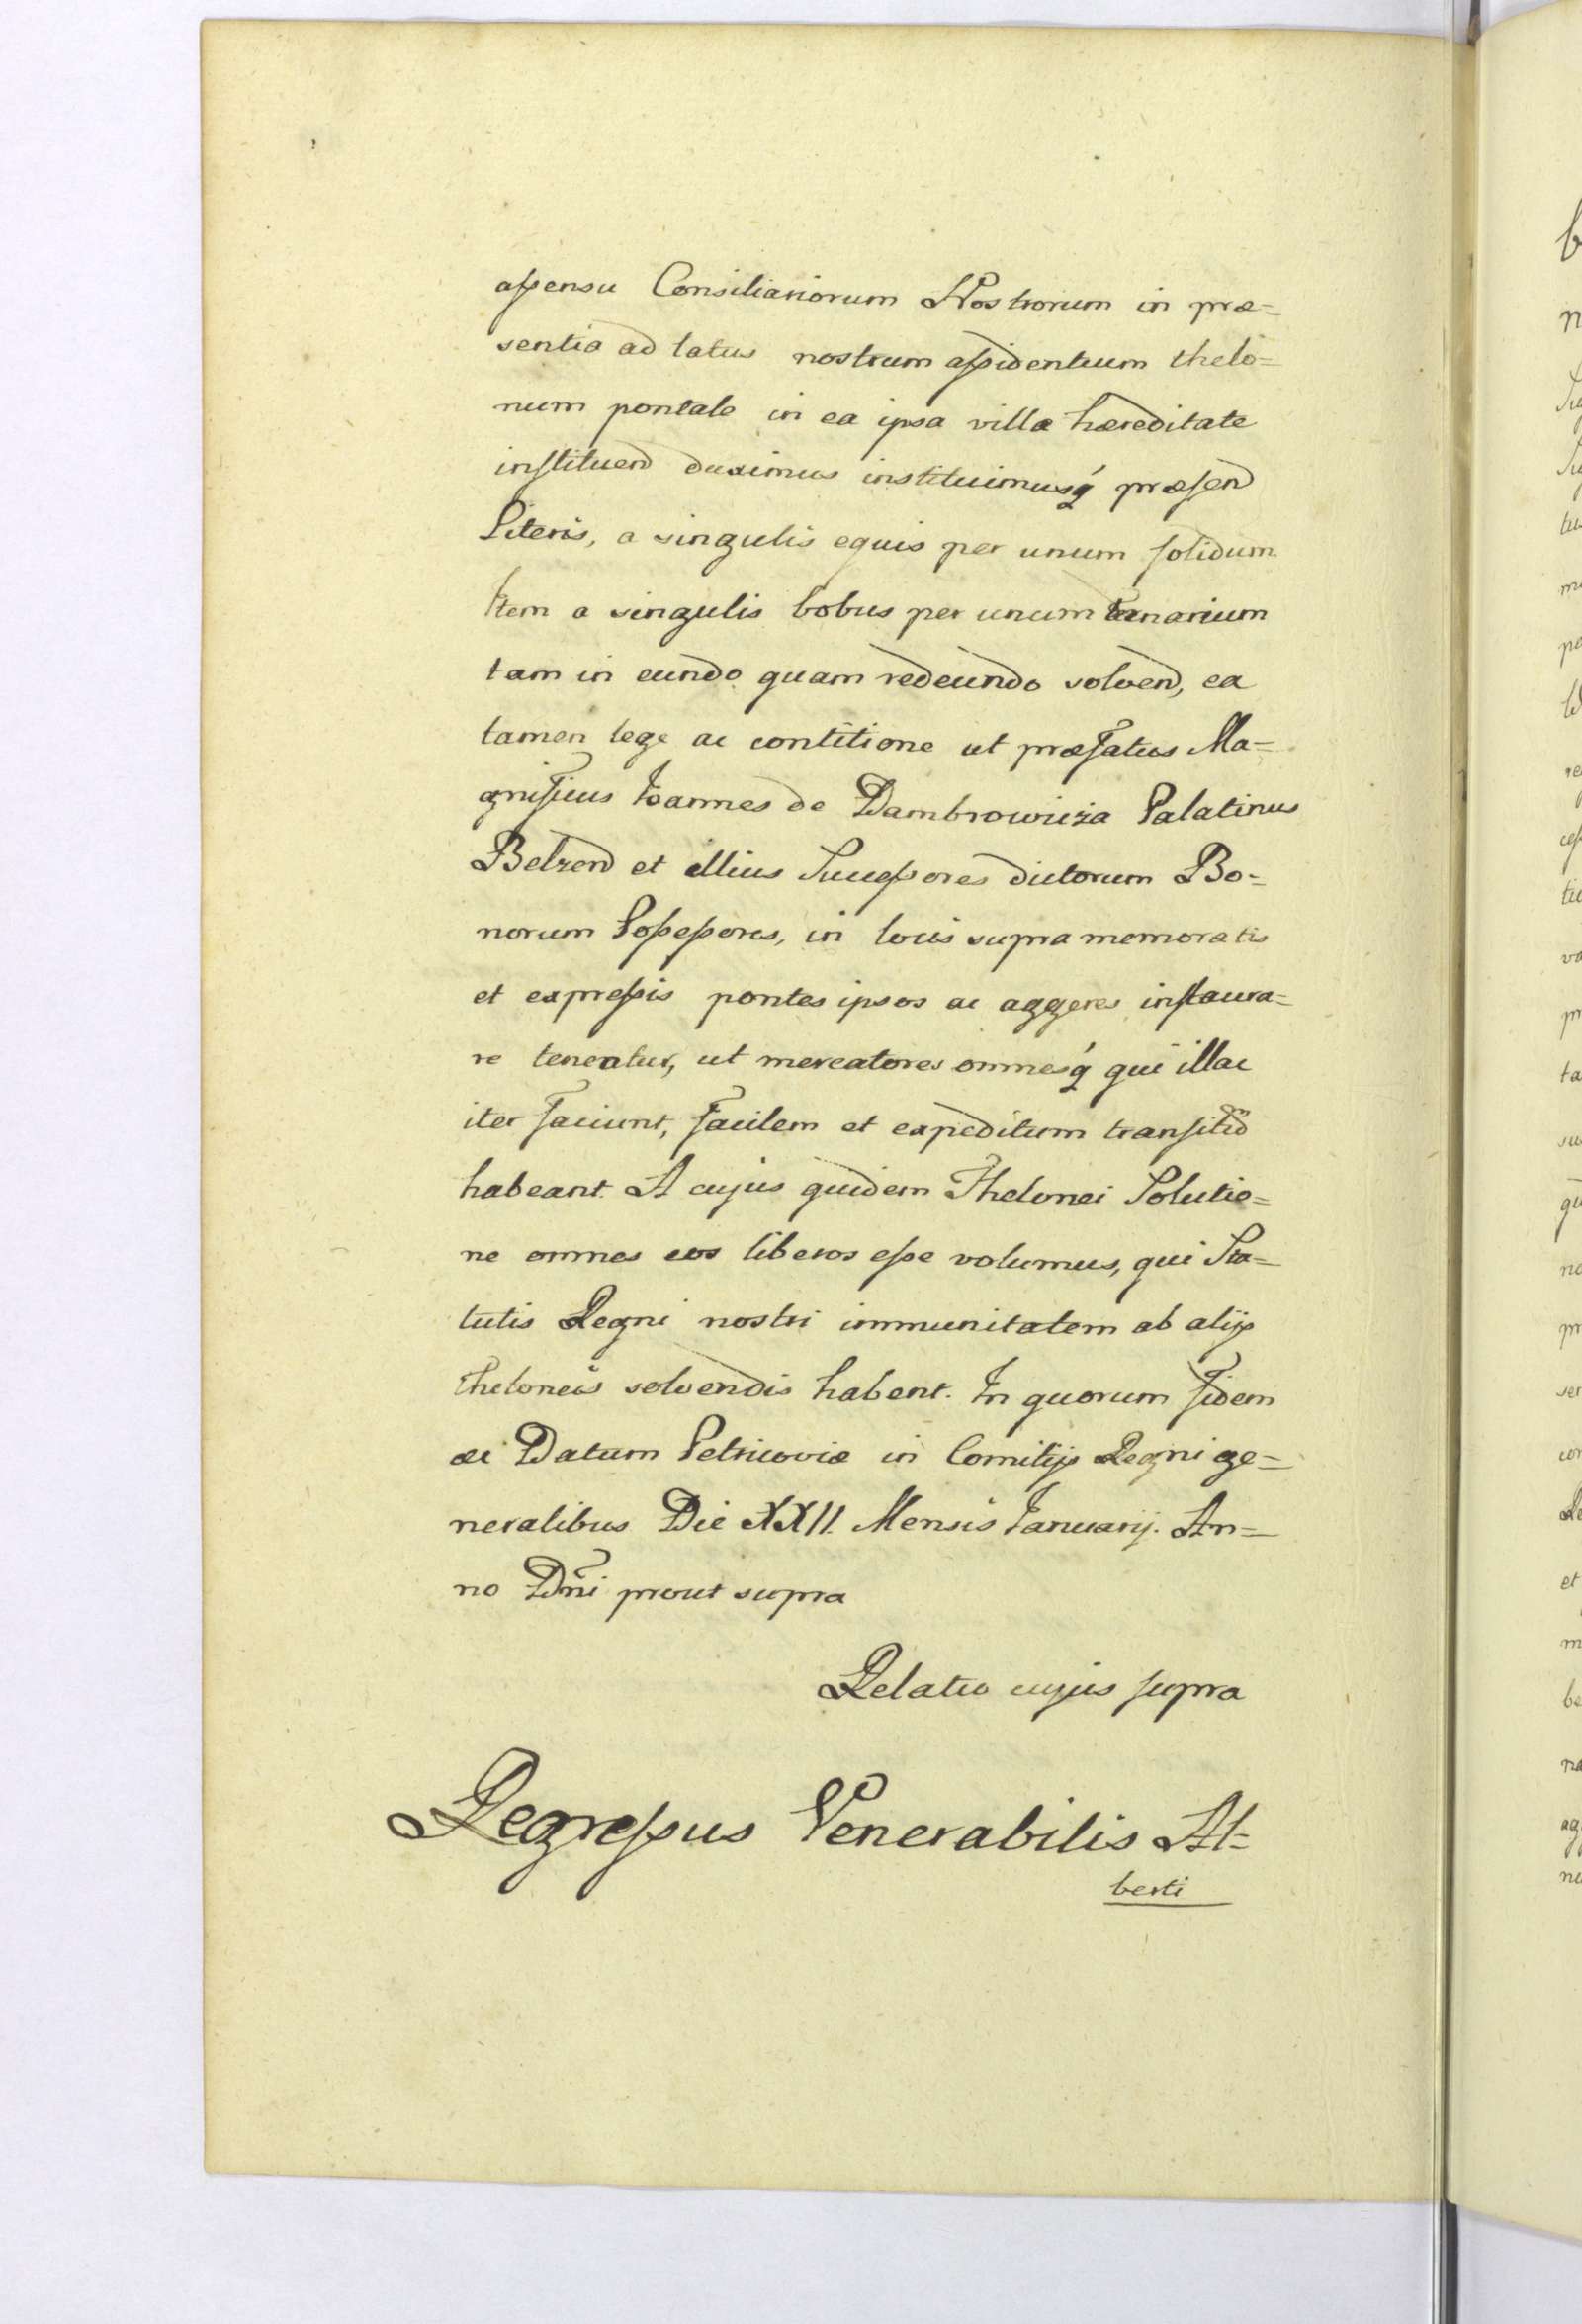 assensu Consiliariorum Nostrorum in præ=
sentia ad latus nostrum assidentium thelo=
num pontale in ea ipsa villæ hæreditate
instituend duximus instituimusq́ præsend
Literis, a singulis equis per unum solidum
Item a singulis bobus per unum ternarium
tam in eundo quam redeundo solvend, ea
tamen lege ac contitione ut præfatus Ma=
gnificus Ioannes de Dambrowicza Palatinus
Belzend et illius Successores dictorum Bo=
norum Possessores, in locis supra memoratis
et expressis pontes ipsos ac aggeres instaura=
re teneatur, ut mercatores omnesq́ qui illac
iter faciunt, facilem et expeditum transitũ
habeant. A cujus quidem Thelonei Solutio=
ne omnes eos liberos esse volumus, qui Sta=
tutis Regni nostri immunitatem ab alijs
theloneis solvendis habent. In quorum fidem
ac Datum Petricoviæ in Comitijs Regni ge=
neralibus Die XXII. Mensis Ianuarij. An=
no Dñi prout supra
Relatio cujus supra
Regressus Venerabilis Al=
berti